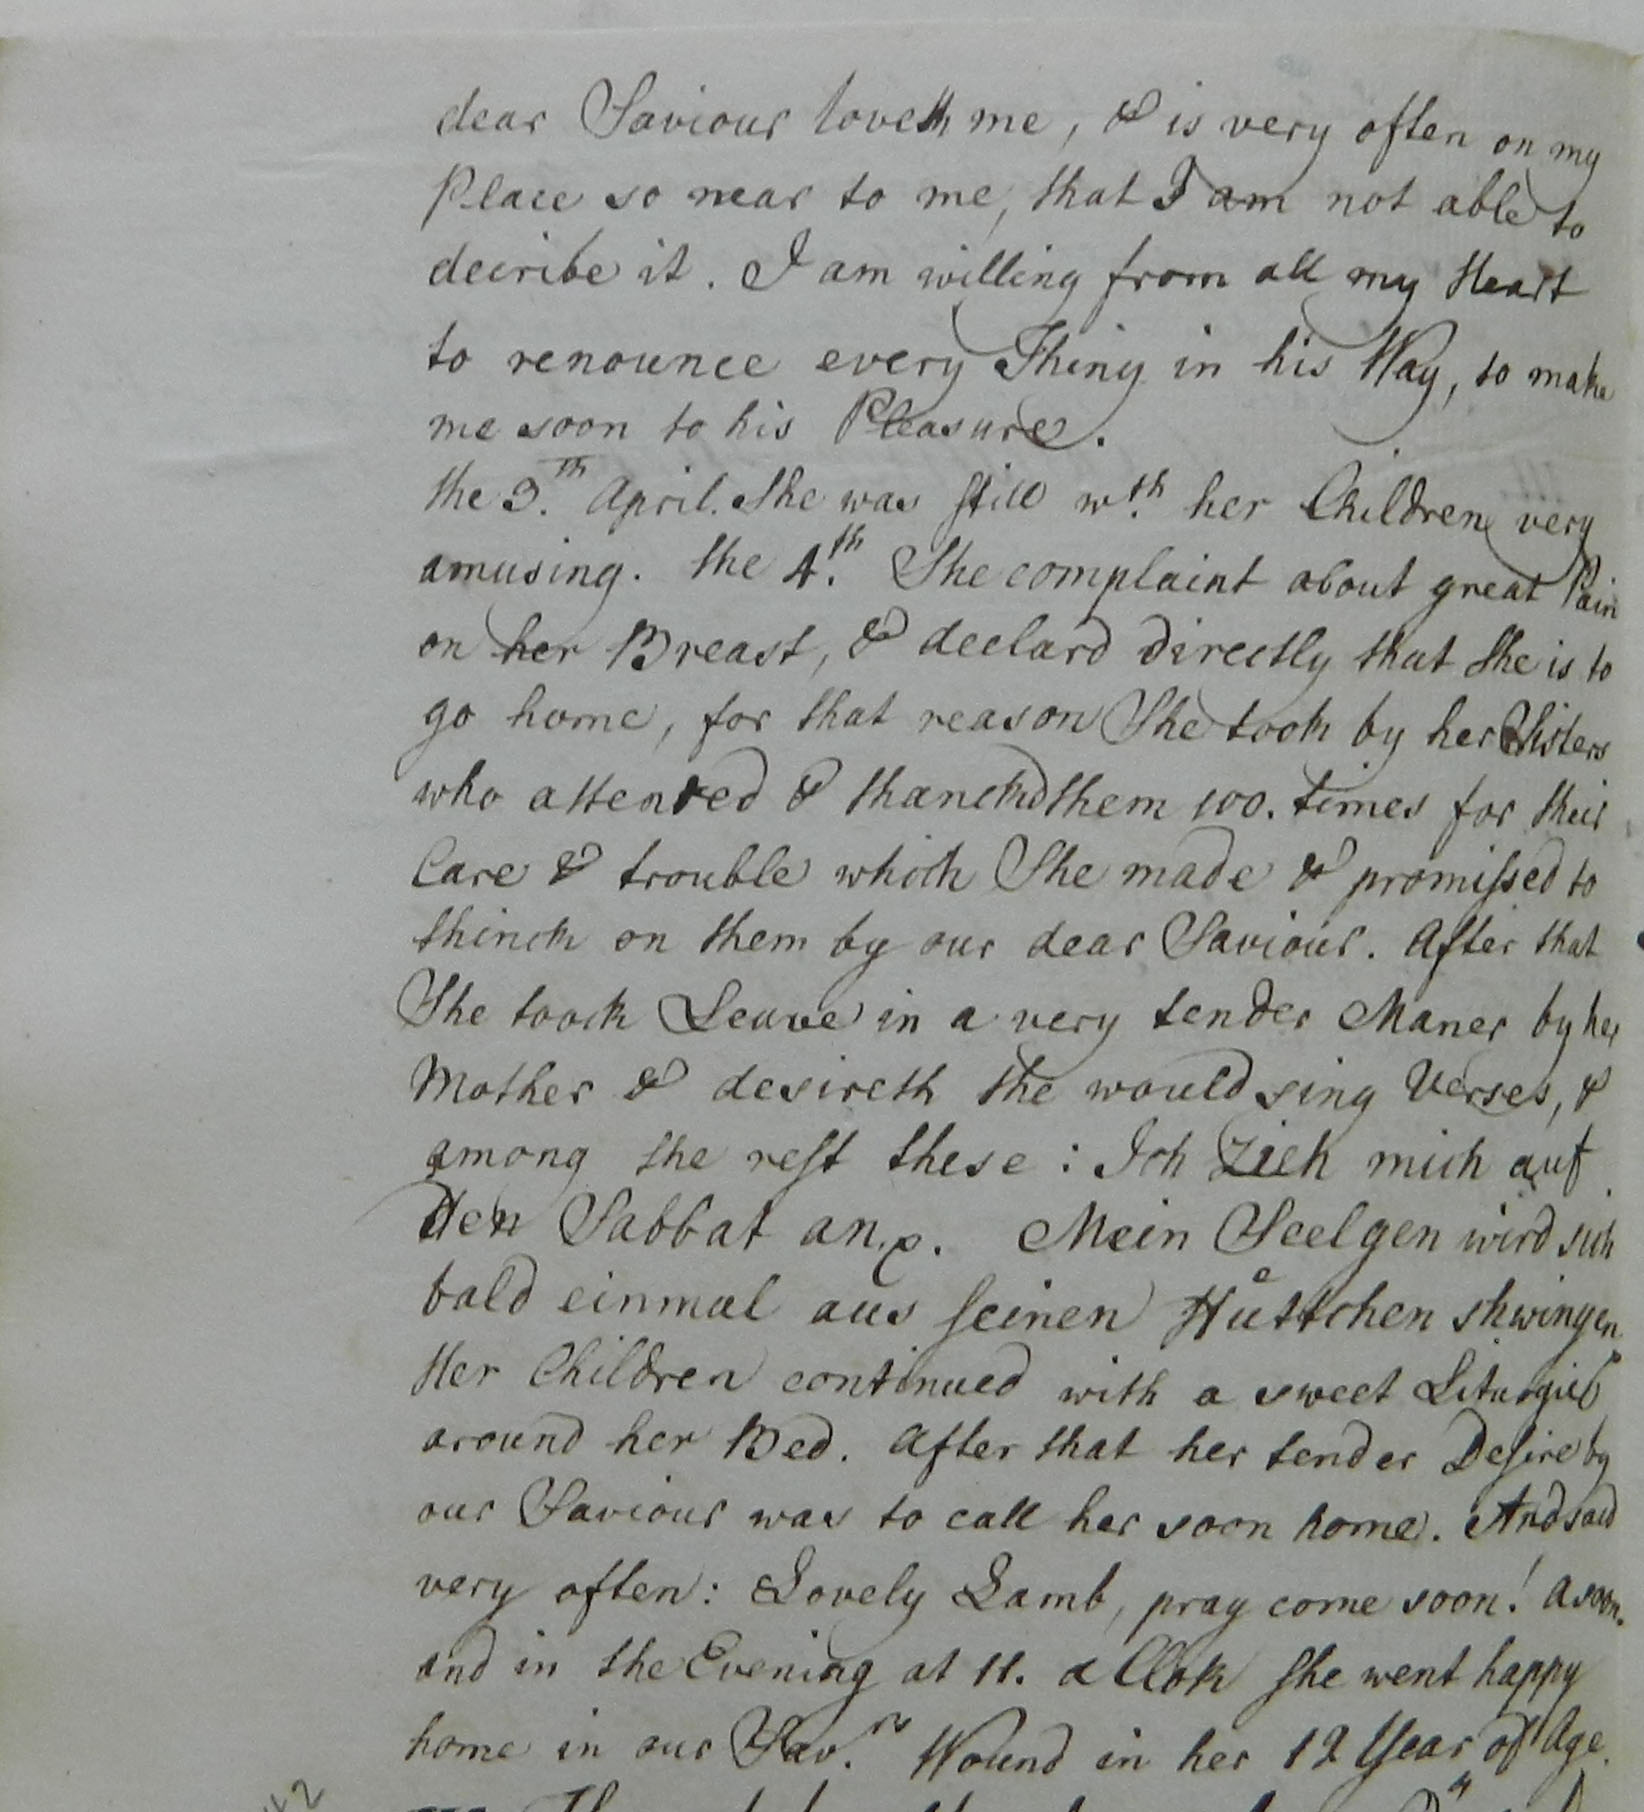 dear Saviour loveth me, & is very often on my
Place so near to me, that I am not able to
decribe it. I am willing from all my Heart
to renounce every Thing in his Way, to make
me soon to his Pleasure.
the 3.th April. She was still w.th her Children very
amusing. the 4.th She complaint about great Pain
on her Breast, & declard directly that she is to
go home, for that reason She took by her Sisters
who attended & thanckd them 100. times for their
Care & trouble which She made & promissed to
thinck on them by our dear Saviour. After that
She toock Leave in a very tender Maner by her
Mother & desireth she would sing Verses, &
among the rest these: Ich zieh mich auf
den Sabbat an. p. Mein Seelgen wird sich
bald einmal aus seinen Hüttchen shwingen
Her Children continued with a sweet Liturgie
around her Bed. After that her tender Desire by
our Saviour was to call her soon home. And said
very often: Lovely Lamb, pray come soon! a soon.
and in the Evening at 11. a Clok she went happy
home in our Sav.rs Wound in her 12 Year of Age.
42